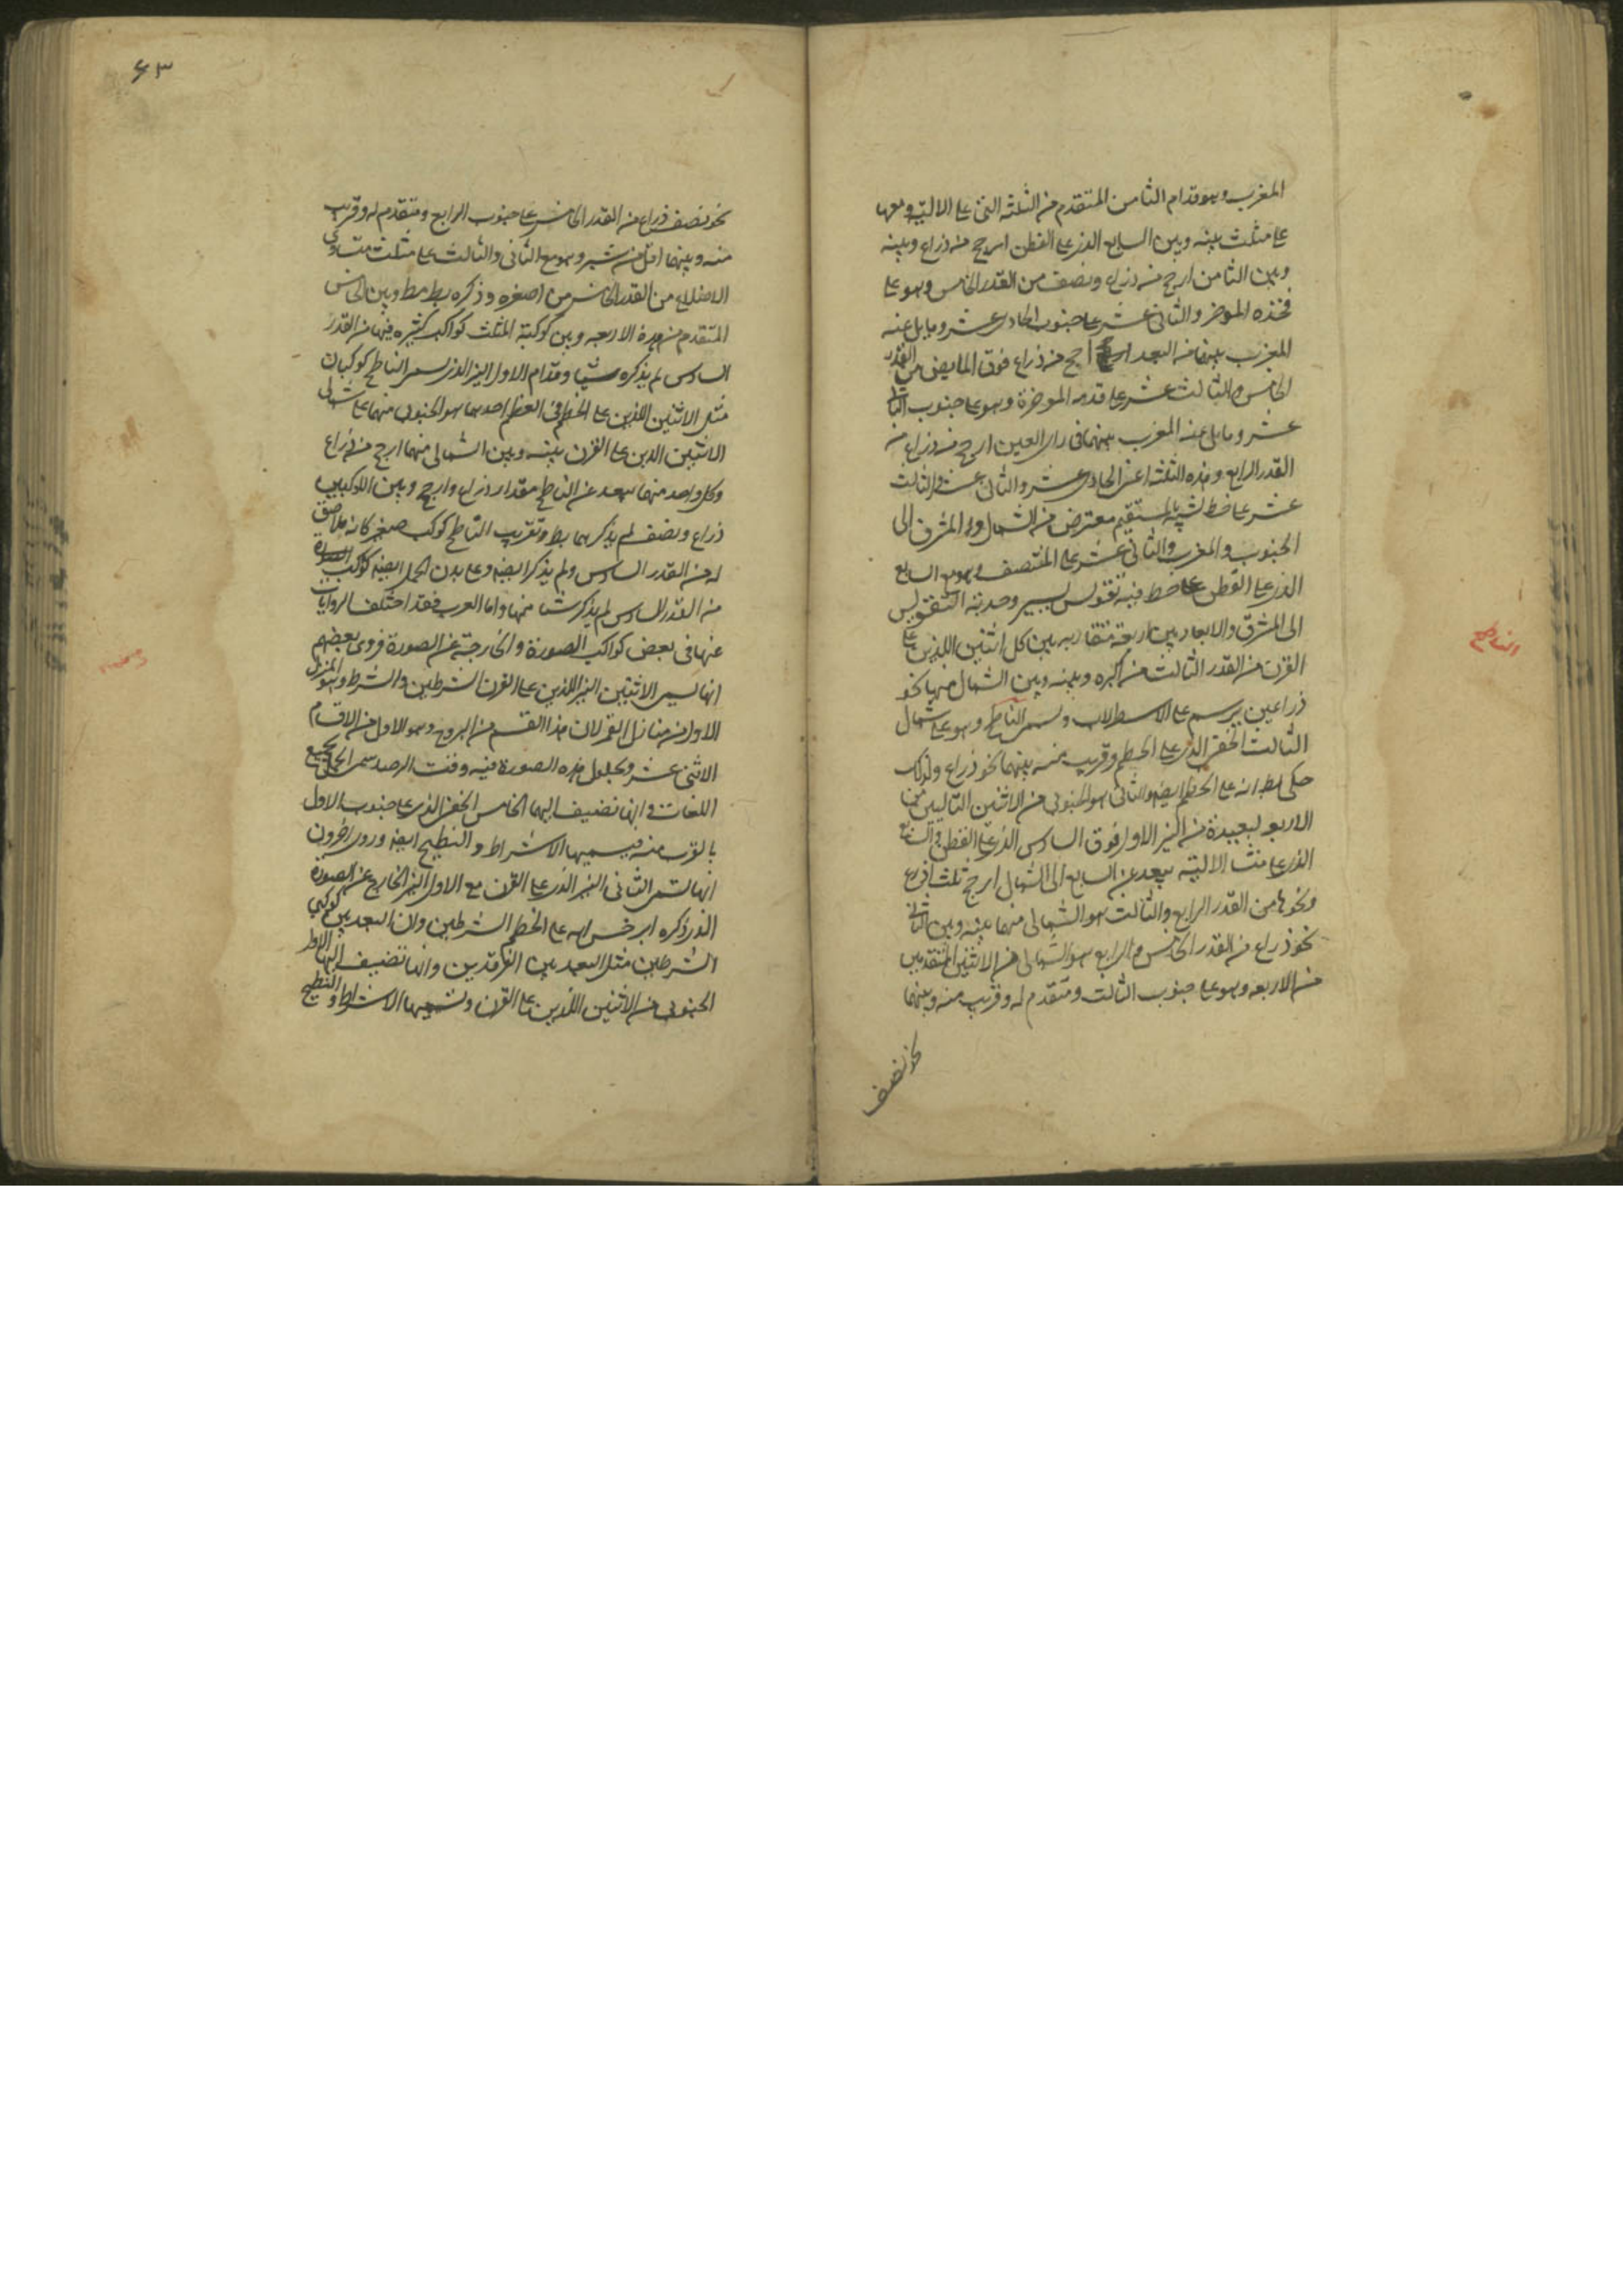 المغرب وهو قدام الثامن المتقدم من الثلثه التى على الالية ومعها
على مثلث بينه وبين السابع الذى على القطن ارجح من ذراع وبينه
وبين الثامن ارجح من ذراع ونصف من القدر الخامس وهو على
فخذه الموخر والثانى عشر على جنوب الحادى عشر ومايل عنه
المغرب بينهما من البعد ارجح من ذراع فوق المابض من القدر
الخامس والثالث عشر على قدمه الموخرة وهو على جنوب الثانى
عشر ومايل عنه المغرب بينهما فى راى العين ارجح من ذراع من
القدر الرابع وهذه الثلثة اعنى الحادى عشر والثانى عشر والثالث
عشر على خط شبيه بالمستقيم معترض من الشمال والمشرق الى
الجنوب والمغرب والثانى عشر على المنتصف وهو مع السابع
الذى على القطن على خط فيه تقويس يسير وحدبة التقويس
الى المشرق والابعاد بين اربعة متقاربه بين كل اثنين اللذين على
القرن من القدر الثالث من اكبره وبينه وبين الشمال منها نحو
ذراعين يرسم على الاسطرلاب ويسمى الناطح وهو على شمال
الثالث الخفى الذى على الخطم وقريب منه بينهما نحو ذراع ولذلك
حكى بط انه على الخطم ايضا والثانى هو الجنوبى من الاثنين التاليين من
الاربعه لبعيدة من النير الاول فوق السادس الذى على القطن والسابع
الذى على منشا الالية يبعد عن السابع الى الشمال ارجح ثلث اذرع
ونحوها من القدر الرابع والثالث هو الشمالى منهما بينه وبين الثانى
نحو ذراع من القدر الخامس والرابع هو الشمالى من الاثنين المتقدمين
من الاربعه وهو على جنوب الثالث ومتقدم له وقريب منه وبينهما
نحو نصف
الناطح
٤٣
نحو نصف ذراع من القدر الخامس على جنوب الرابع ومتقدم له وقريب
منه وبينهما اقل من شبر وهو مع الثانى والثالث على مثلث متساوى
الاضلاع من القدر الخامس من اصغره وذكره بط مطلقا وبين الخامس
المتقدم من هذه الاربعه وبين كوكبة المثلث كواكب كثيره فيها من القدر
السادس لم يذكره شيئا وقدام الاول النير الذى يسمى الناطح كوكبان
مثل الاثنين اللذين على الخطم فى العظم احدهما هو الجنوبى منهما على شمالى
الاثنين الذين على القرن بينه وبين الشمالى منهما ارجح من ذراع
وكل واحد منهما يبعد عن الناطح مقدار ذراع وارجح وبين الكوكبين
ذراع ونصف لم يذكرهما بط وبقرب الناطح كوكب صغير كانه ملاصق
له من القدر السادس ولم يذكر ايضا وعلى بدن الحمل ايضا كواكب
من القدر السادس لم يذكر شيئا منها واما العرب فقد اختلف الروايات
عنها فى بعض كواكب الصورة والخارجة عن الصورة فروى بعضهم
انها تسمى الاثنين النيرين اللذين على القرن الشرطين والشرط وهو المنزل
الاول من منازل القمر لان هذا القسم من البروج وهو الاول من الاقسام
الاثنى عشر وبحلول هذه الصورة فيه وقت الرصد سمى الحمل بجميع
اللغات وانها تضيف اليهما الخامس الخفى الذى على جنوب الاول
بالقرب منه فيسميها الاشراط والنطيح ايضا وروى اخرون
انها تسمى الثانى النير الذى على القرن مع الاول النير الخارج عن الصورة
الذى ذكره ابرخس انه على الخطم الشرطين وان البعد بين كوكبى
الشرطين مثل البعد بين الفرقدين وانها تضيف اليها الاول
الجنوبى من الاثنين اللذين على القرن وتسميها الاشراط والنطيح